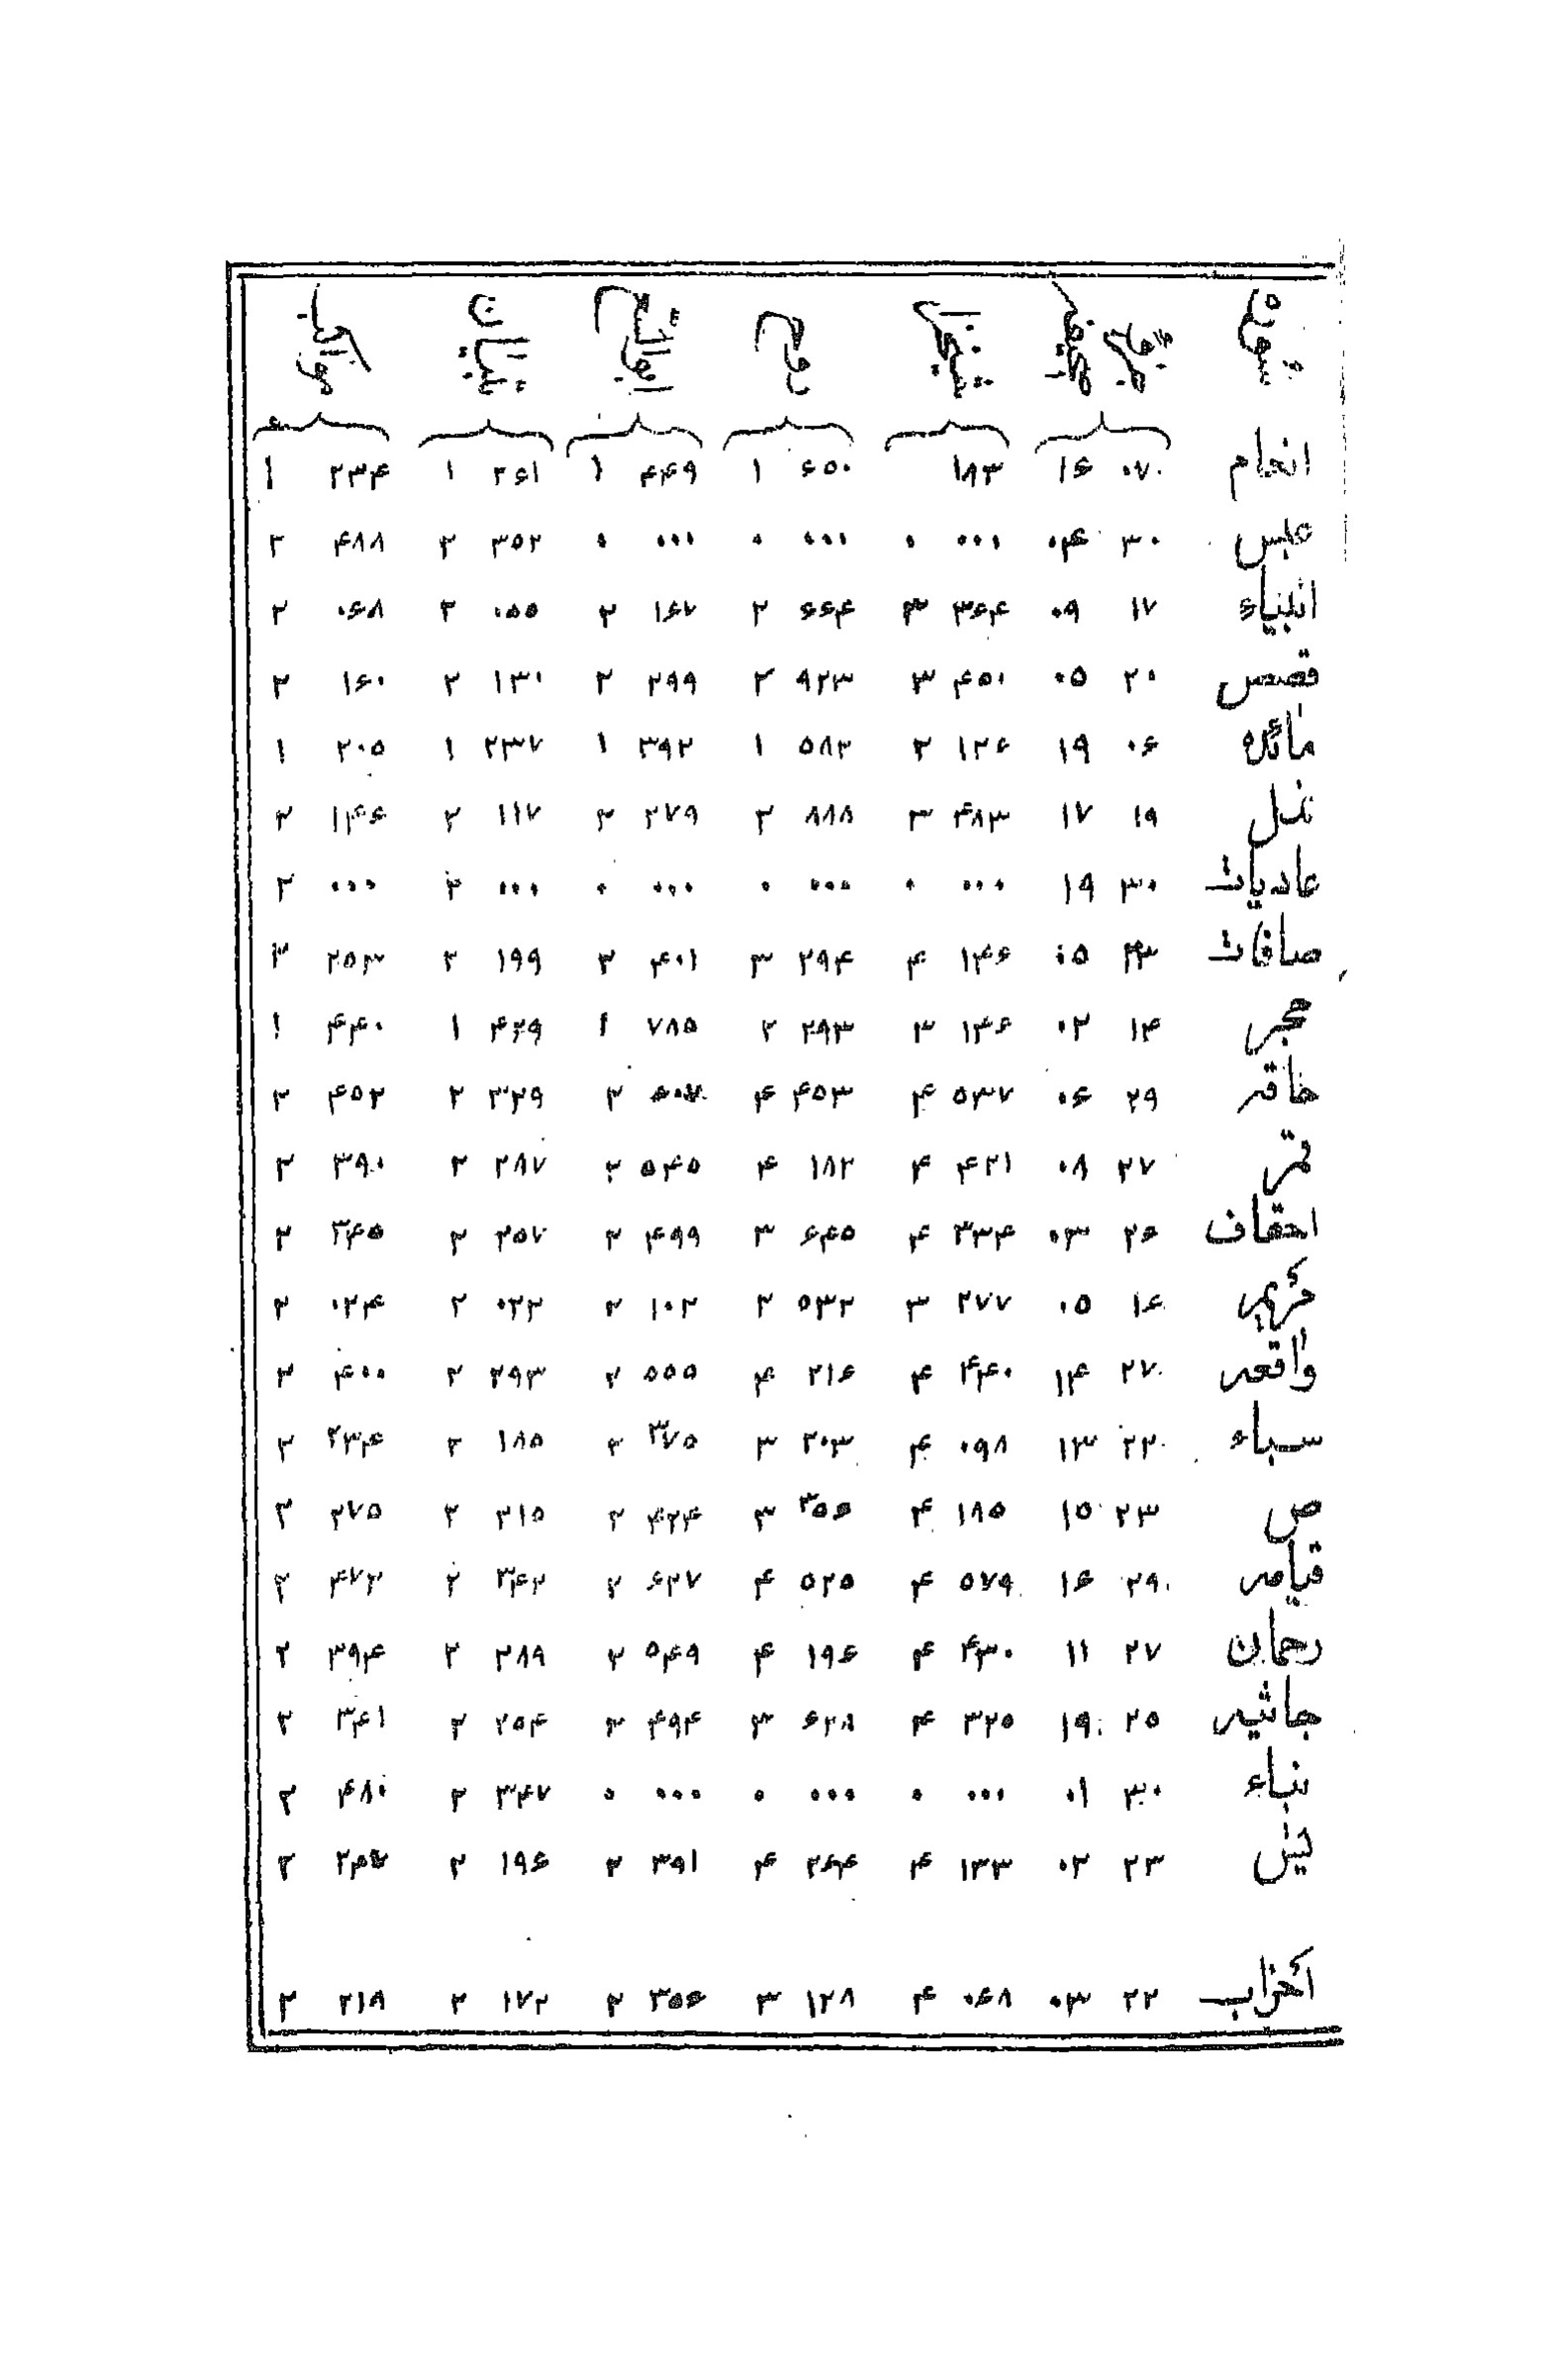 انعام ۰۷ ۱۶ ۱۸۳ ۶۵۰ ۱ ۴۴۹ ۱ ۲۶۱ ۱ ۲۳۴ ۱
عبس ۳۰ ۰۴ ۰۰۰ ۰ ۰۰۰ ۰ ۰۰۰ ۰ ۳۵۲ ۲ ۴۸۸ ۲
انبیاء ۱۷ ۰۹ ۳۶۴ ۳ ۶۶۴ ۲ ۱۶۷ ۲ ۰۵۵ ۲ ۰۶۸ ۲
قصص ۲۰ ۰۵ ۴۵۰ ۳ ۹۲۳ ۲ ۲۹۹ ۲ ۱۳۰ ۲ ۱۶۰ ۲
مائده ۰۶ ۱۹ ۱۲۶ ۲ ۵۸۲ ۱ ۳۹۲ ۱ ۲۳۷ ۱ ۲۰۵ ۱
نمل ۱۹ ۱۷ ۴۸۳ ۳ ۸۸۸ ۲ ۲۷۹ ۲ ۱۱۷ ۲ ۱۴۶ ۲
عادیات ۳۰ ۱۹ ۰۰۰ ۰ ۰۰۰ ۰ ۰۰۰ ۰ ۰۰۰ ۲ ۰۰۰ ۲
صافات ۲۳ ۰۵ ۱۴۶ ۴ ۲۹۴ ۳ ۴۰۱ ۲ ۱۹۹ ۲ ۲۵۳ ۲
حجر ۱۴ ۰۲ ۱۴۶ ۳ ۲۹۳ ۲ ۷۸۵ ۱ ۴۲۹ ۱ ۴۴۰ ۱
حاقه ۲۹ ۰۶ ۵۳۷ ۴ ۴۵۳ ۴ ۶۰۷ ۲ ۳۲۹ ۲ ۴۵۲ ۲
قمر ۲۷ ۰۸ ۴۲۱ ۴ ۱۸۲ ۴ ۵۴۵ ۲ ۲۸۷ ۲ ۳۹۰ ۲
احقاف ۲۶ ۰۳ ۳۳۴ ۴ ۶۴۵ ۳ ۴۹۹ ۲ ۲۵۷ ۲ ۳۴۵ ۲
مریم ۱۶ ۰۵ ۲۷۷ ۳ ۵۳۲ ۲ ۱۰۲ ۲ ۰۲۲ ۲ ۰۲۴ ۲
واقعه ۲۷ ۱۴ ۴۴۰ ۴ ۲۱۶ ۴ ۵۵۵ ۲ ۲۹۳ ۲ ۴۰۰ ۲
سباء ۲۲ ۱۳ ۰۹۸ ۴ ۲۰۳ ۳ ۳۷۵ ۲ ۱۸۵ ۲ ۲۳۴ ۲
ص ۲۳ ۱۵ ۱۸۵ ۴ ۳۵۶ ۳ ۴۲۴ ۲ ۲۱۵ ۲ ۲۷۵ ۲
قیامه ۲۹ ۱۶ ۵۷۹ ۴ ۵۲۵ ۴ ۶۲۷ ۲ ۳۴۲ ۲ ۴۷۲ ۲
رحمان ۲۷ ۱۱ ۴۳۰ ۴ ۱۹۶ ۴ ۵۴۹ ۲ ۲۸۹ ۲ ۳۹۴ ۲
جاثیه ۲۵ ۱۹ ۳۲۵ ۴ ۶۲۸ ۳ ۴۹۴ ۲ ۲۵۴ ۲ ۳۴۱ ۲
نباء ۳۰ ۰۱ ۰۰۰ ۰ ۰۰۰ ۰ ۰۰۰ ۰ ۳۴۷ ۲ ۴۸۰ ۲
یس ۲۳ ۰۲ ۱۳۳ ۴ ۲۶۴ ۴ ۳۹۱ ۲ ۱۹۶ ۲ ۲
أحزاب ۲۲ ۰۳ ۰۶۸ ۴ ۱۲۸ ۳ ۳۵۶ ۲ ۱۷۲ ۲ ۲۱۸ ۲